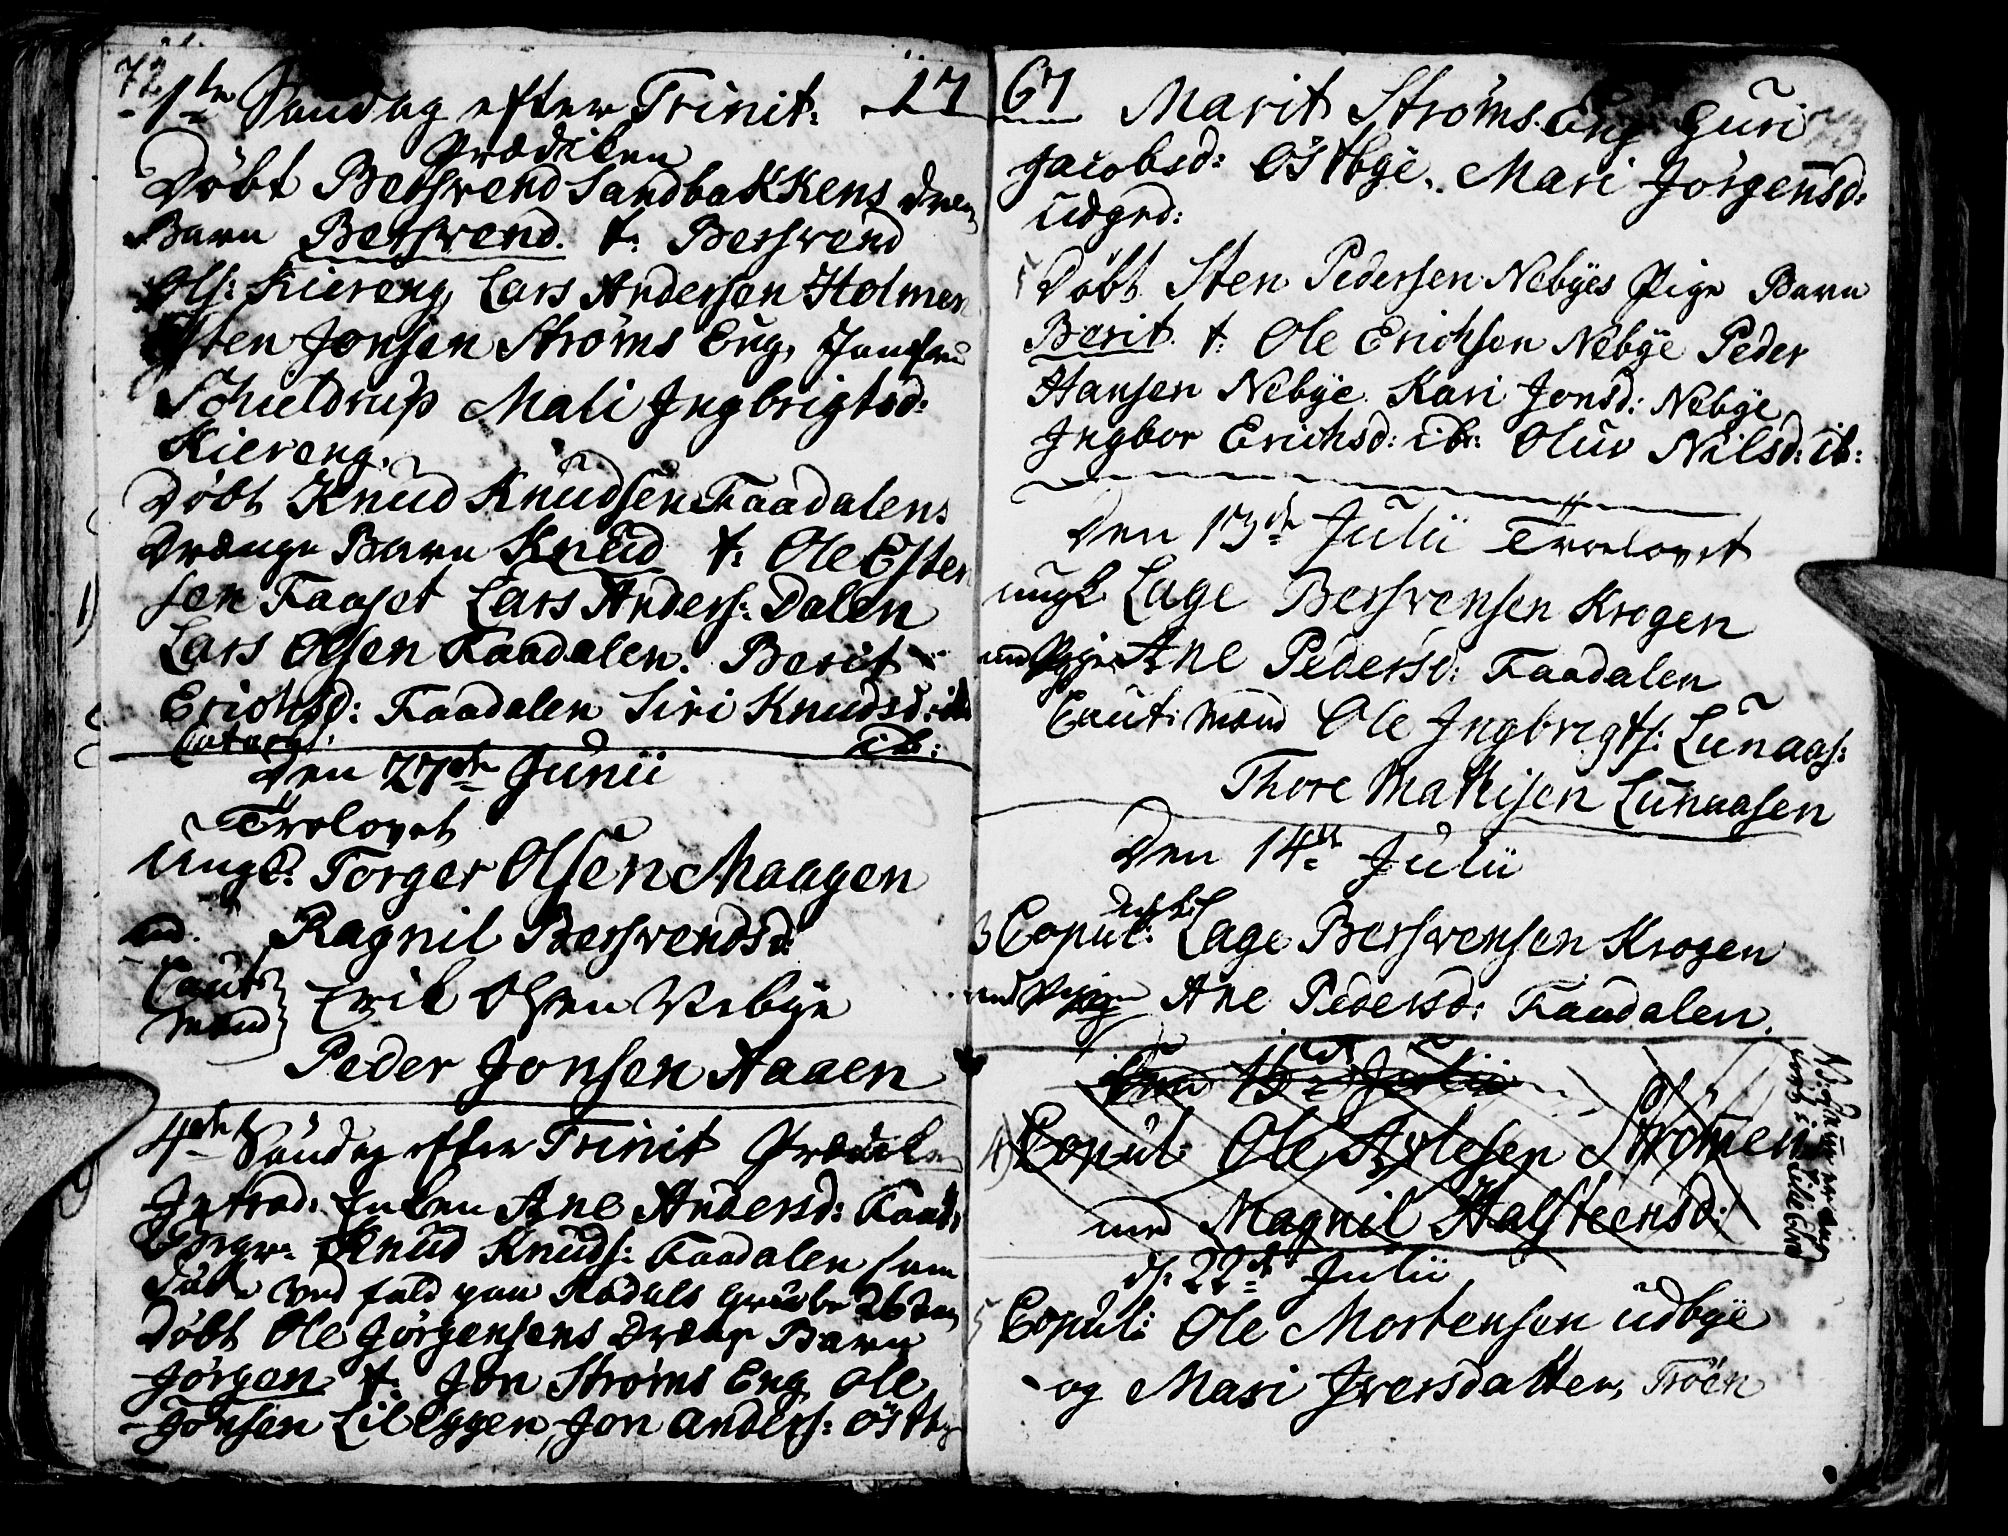 72
1te Søndag efter Trinit: 17
Prædiken
Döbt Bersvend Sandbakkens dren
Barn Bersvend. t: Bersvend
Ols: Kiereng, Lars Andersen Holmen
Esten Jonsen Ströms Eng, Jomfru
Schieldrup Mali Jngbrigtsd:
Kiereng.
Döbt Knud Knudsen Faadalens
Drænge Barn Knud t: Ole Esten
sen Faaset Lars Anders: Dalen
Lars Olsen Faadalen. Berit
Erichsd: Faadalen Siri Knudsd:
ib:
Den 27de Junii
Trolovet
Ungk: Torger Olsen Maagen
und. Ragnil Bersvendsd:
Caut: Erik Olsen Nebye
Mænd Peder Jonsen Aaaen
4de Søndag efter Trinit Prædiken
Jntrod: Enken Ane Andersd: Faad:
Knud Knuds: Faadalen som
döde ved fald paa Rödals Grube
Döbt Ole Jörgensens Drænge Barn
Jörgen t. Jon Ströms Eng Ole
Jonsen Lileggen, Jon Anders: Östby
67 Marit Ströms Eng Guri
Jacobsd: Östbye. Mari Jörgensd:
udgrd:
Döbt Sten Pedersen Nebyes Pige Barn
Berit. t: Ole Erichsen Nebye Peder
Hansen Nebye Kari Jonsd: Nebye
Jngbor Erichsd: ib: Oluv Nilsd: ib:
Den 13de Julii Trolovet
ungk Lage Bersvensen Krogen
und Pige Ane Pedersd: Faadalen
Caut: Mænd Ole Jngbrigts: Lunaas:
Thore Mathisen Lunaasen
Den 14de Julii
3 Copul: Lage Bersvensen Krogen
und Pige Ane Pedersd: Faadalen.
Den 15de Julii
4) Copul: Ole Aslesen Strömen
med Magnil Halsteensd:
d: 22de Julii
5 Copul: Ole Mortensen udbye
og Mari Jversdatter, Tröen